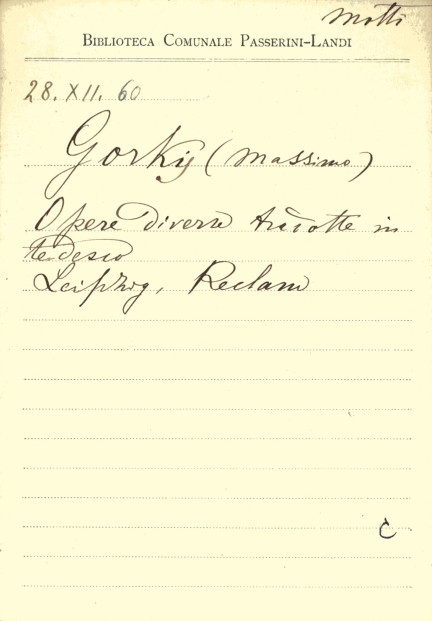 Motti
BIBLIOTECA COMUNALE PASSERINI-LANDI
28. XII. 60
Gorkij (Massimo)
Opere diverse tradotte in
tedesco
Leipzig, Reclam
C